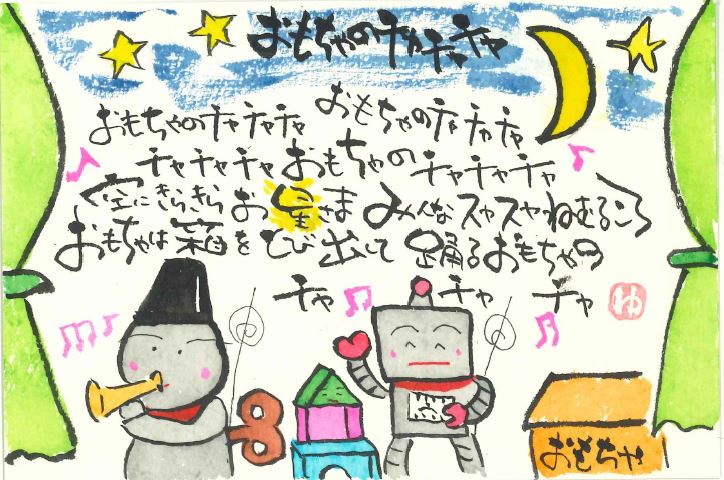 おもちゃのチャチャチャ
おもちゃのチャチャチャ おもちゃのチャチャチャ
チャチャチャおもちゃのチャチャチャ
空にきらきらお星さまみんなスヤスヤねむるころ
おもちゃは箱をとび出して踊るおもちゃの
チャチャチャ
ゆ
おもちゃ